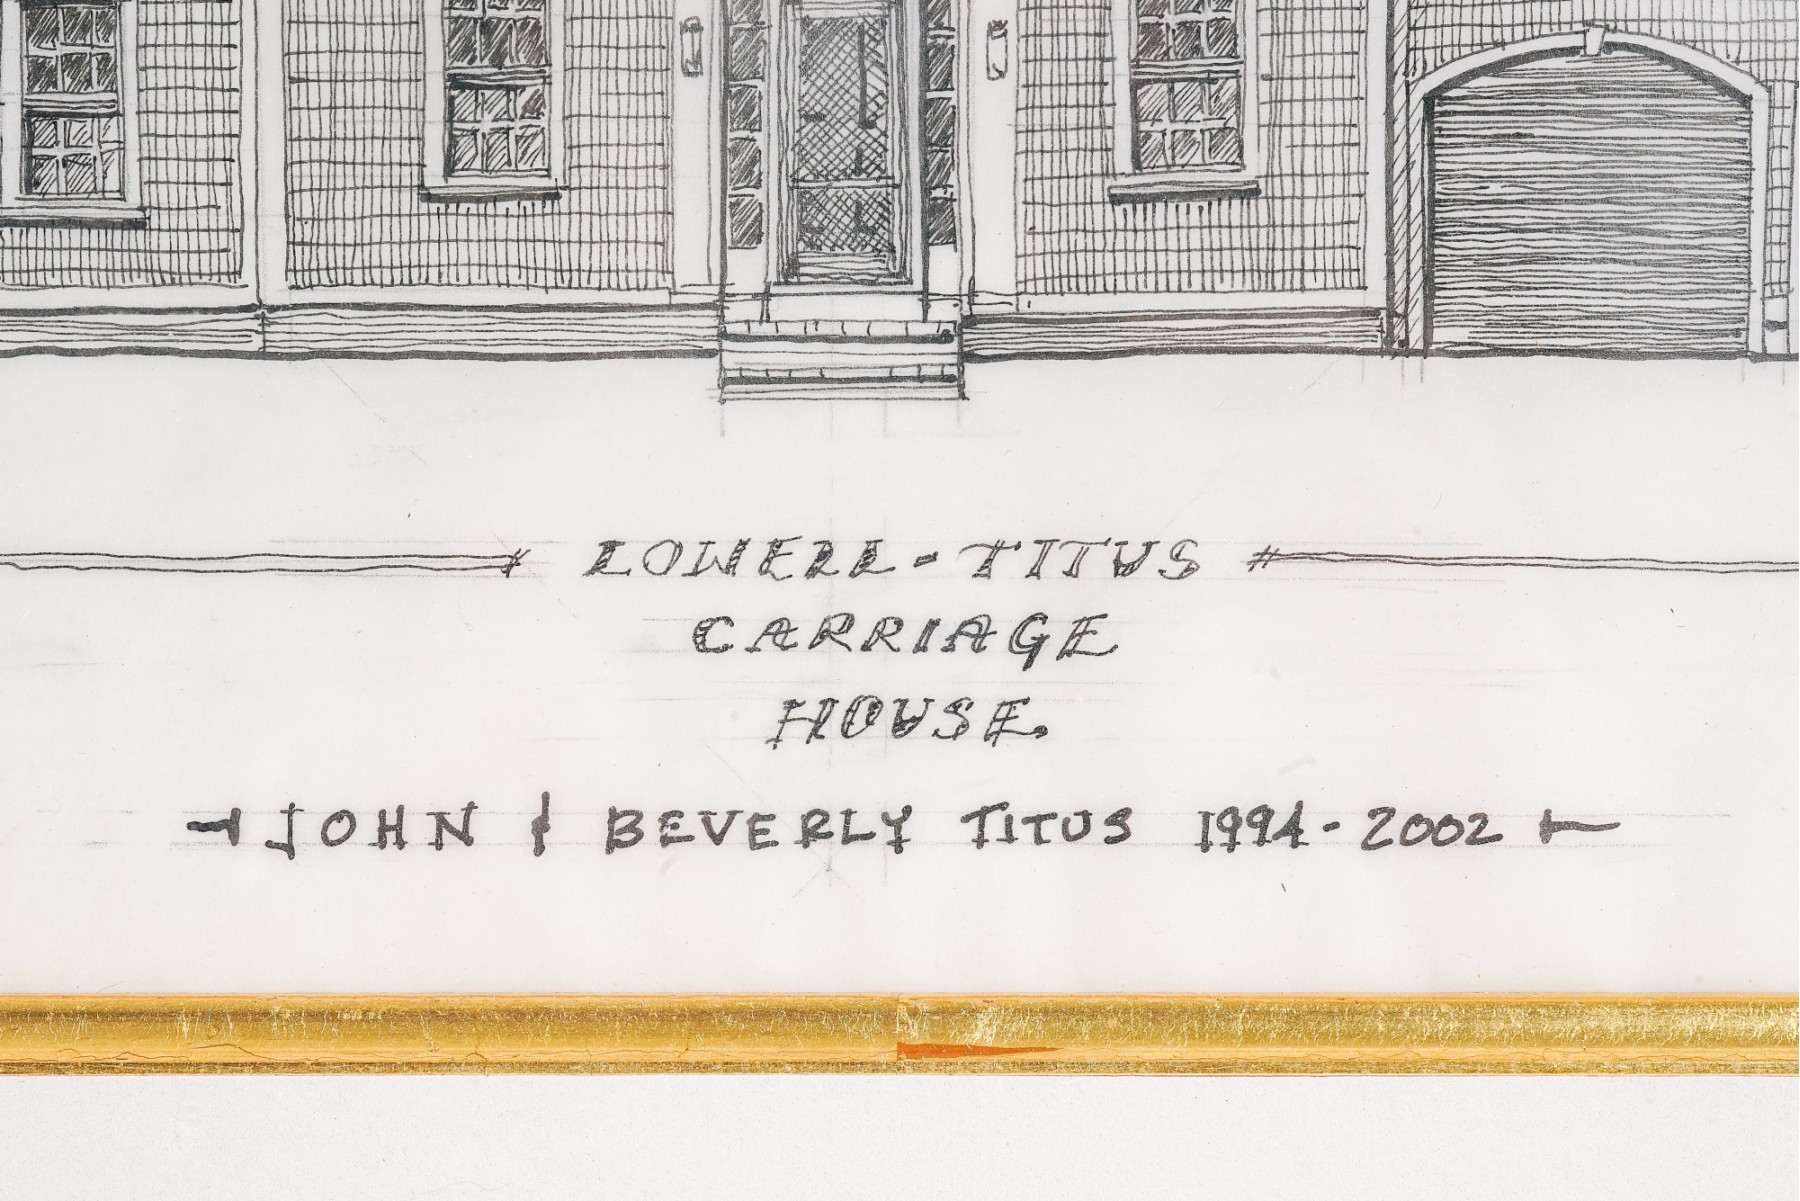 LOWELL - TITUS
CARRIAGE
HOUSE.
JOHN & BEVERLY TITUS 1994 - 2002